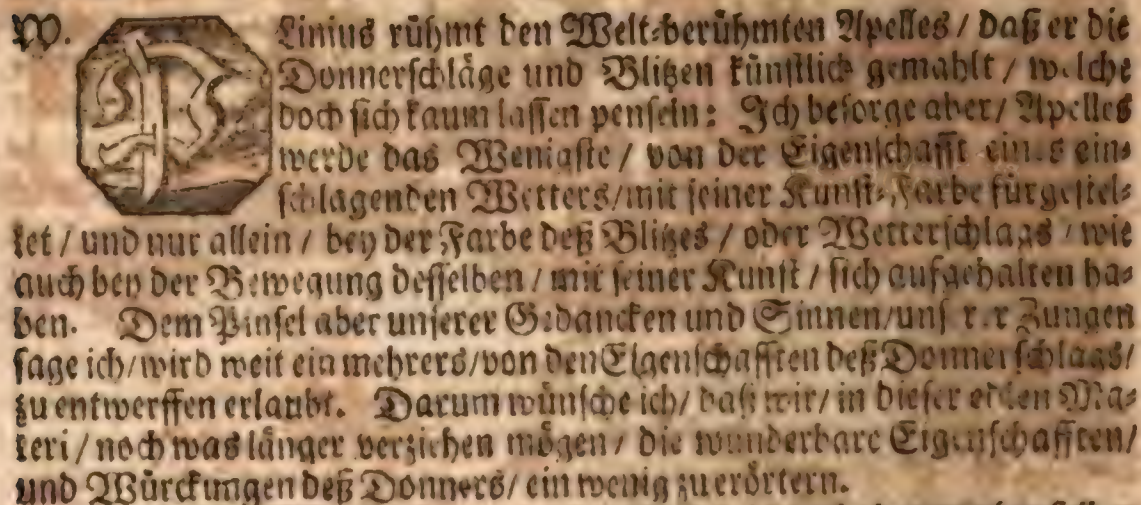 W. PLinius rühmt den Welt-berühmten Apelles / daß er die
Donnerschläge und Blitzen künstlich gemahlt / welche
doch sich kaum lassen penseln: Ich besorge aber / Apelles
werde das Wenigste / von der Eigenschafft eines ein-
schlagenden Wetters / mit seiner Kunst-Farbe fürgestel-
let / und nur allein / bey der Farbe deß Blitzes / oder Wetterschlags / wie
auch bey der Bewegung desselben / mit seiner Kunst / sich aufgehalten ha-
ben. Dem Pinsel aber unserer Gedancken und Sinnen / unserer Zungen
sage ich / wird weit ein mehrers / von den Eigenschafften deß Donnerschlags /
zu entwerffen erlaubt. Darum wünsche ich / daß wir / in dieser edlen Ma-
teri / noch was länger verziehen mögen / die wunderbare Eigenschafften /
und Würckungen deß Donners / ein wenig zu erörtern.